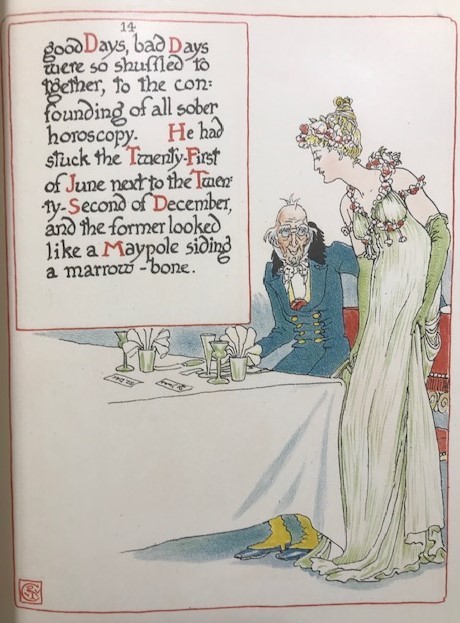 14
good Days, bad Days
were so shuffled to
gether, to the con:
founding of all sober
horoscopy. He had
stuck the Twenty-First
of June next to the Twen:
ty-Second of December,
and the former looked
like a Maypole siding
a marrow-bone.